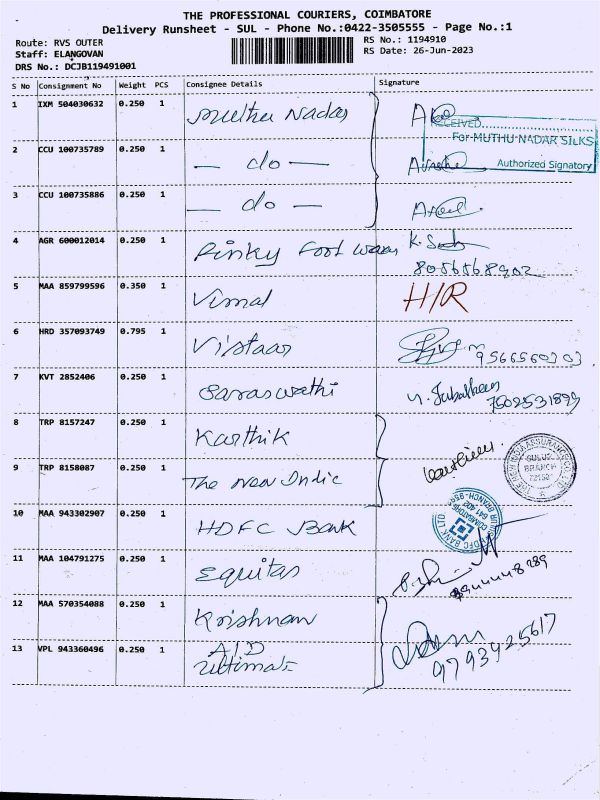 THE PROFESSIONAL COURIERS, COIMBATORE
Delivery Runsheet - SUL - Phone No.:0422-3505555 - Page No.:1
Route: RVS OUTER RS No.: 1194910
Staff: ELANGOVAN RS Date: 26-Jun-2023
DRS No.: DCJB119491001
S No Consignment No Weight PCS Consignee Details Signature
1 IXM 504030632 0.250 1 Muthu Nadar
RECEIVED
For MUTHU NADAR SILKS
2 CCU 100735789 0.250 1 — do —
Authorized Signatory
3 CCU 100735886 0.250 1 — do —
4 AGR 600012014 0.250 1 Pinky Foot wears
8056568902
5 MAA 859799596 0.350 1 Vimal H/R
6 HRD 357093749 0.795 1 Vistaar
9566560303
7 KVT 2852406 0.250 1 Saraswathi
7502531899
8 TRP 8157247 0.250 1 Karthik
9 TRP 8158087 0.250 1 The New India
THE NEW INDIA ASSURANCE CO. LTD
SULUR
BRANCH
10 MAA 943302907 0.250 1 HDFC Bank
HDFC BANK LTD
11 MAA 104791275 0.250 1 Equitas
12 MAA 570354088 0.250 1 Krishnan
13 VPL 943360496 0.250 1 AID
Ultimate
9793425617